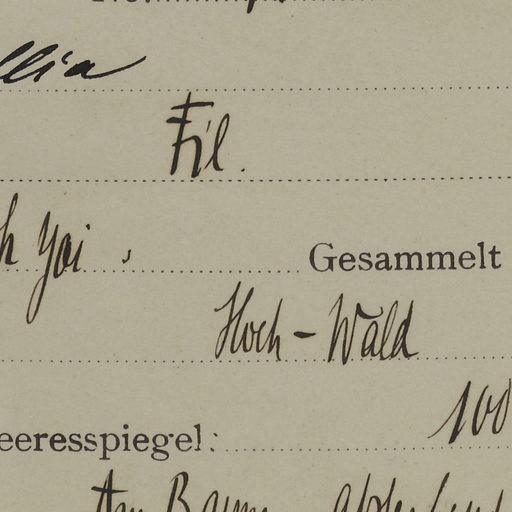 llia
Fil.
h Yoi, Gesammelt
Hoch-Wald
100
eeresspiegel:
Am Baum